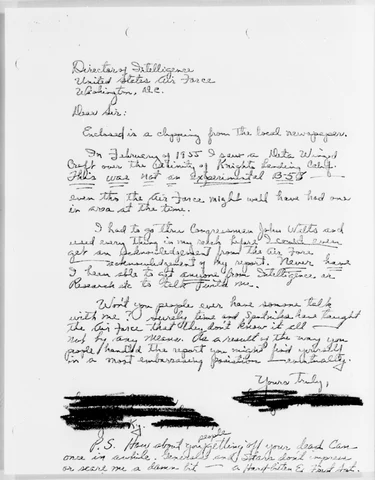 Director of Intelligence
United States Air Force
Washington, D.C.
Dear Sir:
Enclosed is a clipping from the local newspaper.
In February of 1955 I saw a Delta Winged
Craft over the vicinity of Knights Landing Calif.
This was not an Experimental B-58 —
even tho the Air Force might well have had one
in area at the time.
I had to go thru Congressman John Watts and
used every thing in my reach before I could even
get an Acknowledgement from the Air Force
— acknowledgement of my report. Never have
I been able to get anyone from Intelligence or
Research etc to talk with me.
Won't you people ever have someone talk
with me? Surely time and Sputniks have taught
the Air Force that they don't know it all —
not by any means. As a result of the way you
people handled the report you might find yourself
in a most embarrassing position — eventually.
Yours Truly,
Ky.
people
P.S. How about you getting off your dead Can
once in awhile. Generals and Stars don't impress
or scare me a damn bit — a Hardbitten Ex